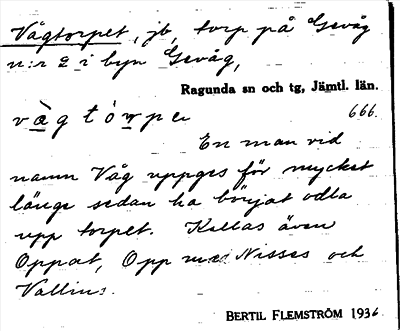 Vågtorpet, jb, torp på Gevåg
n:r 2 i byn Gevåg,
Ragunda sn och tg, Jämtl. län.
vàgtòrpe 666.
En man vid
namn Våg uppges för mycket
länge sedan ha börjat odla
upp torpet. Kallas även
Oppat, Opp Nisses och
Vallins.
BERTIL FLEMSTRÖM 1936